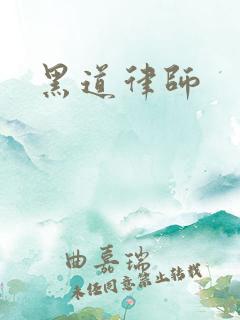 黑道律師
曲嘉瑞
未经同意禁止转载